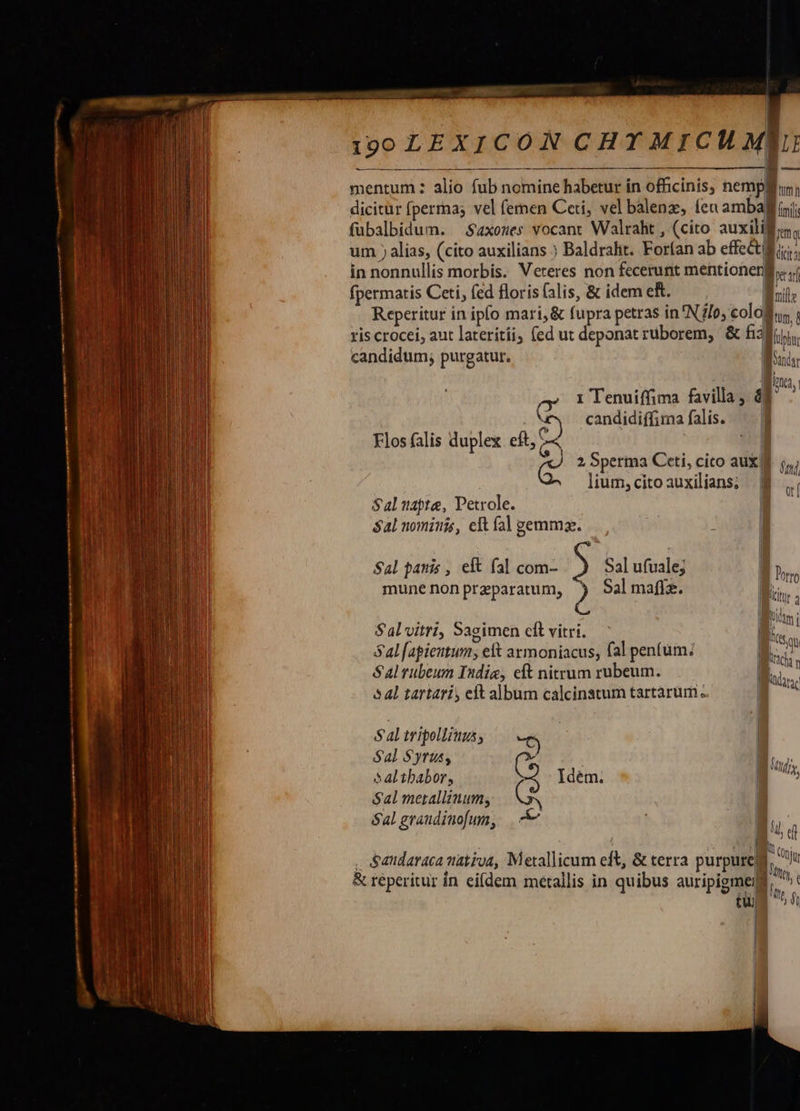 190 LEXICON CHYMICUM
mentum: alio ſub nomine habetur in officinis, nemp
dicitur ſperma, vel ſemen Ceti, vel balenæ, ſeu amba
ſubalbidum. Saxones vocant Walraht, (cito auxili
um) alias, (cito auxilians) Baldraht. Forſan ab effecti
in nonnullis morbis. Veteres non fecerunt mentionem
ſpermatis Ceti, ſed floris ſalis, & idem eſt.
Reperitur in ipſo mari, & ſupra petras in Nilo, colo
ris crocei, aut lateritii, ſed ut deponat ruborem, & fiat
candidum, purgatur.
1 Tenuiſſima favilla, &
candidiſſima ſalis.
Flos ſalis duplex eſt,
2 Sperma Ceti, cito auxi
lium, cito auxilians.
Sal naptæ, Petrole.
Sal nominis, eſt ſal gemmæ.
Sal panis, eſt ſal com- Sal uſuale;
mune non præparatum, Sal maſſæ.
Sal vitri, Sagimen eſt vitri.
Sal ſapientum, eſt armoniacus, ſal penſum.
Sal rubeum Indiæ, eſt nitrum rubeum.
Sal tartari, eſt album calcinatum tartarum.
Sal tripollinus,
Sal Syrus,
Sal thabor, Idem.
Sal metallinum,
Sal grandinoſum,
Sandaraca nativa, Metallicum eſt, & terra purpure
& reperitur in eiſdem metallis in quibus auripigmen
tu